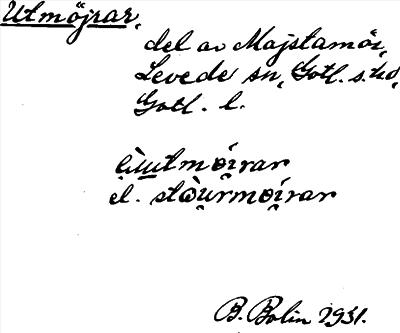 Utmöjrar,
del av Majstamör,
Levede sn, Gotl. s. hd,
Gotl. l.
u̯tmöi̯rar
el. stòu̯rmöi̯rar
B. Bolin 1931.